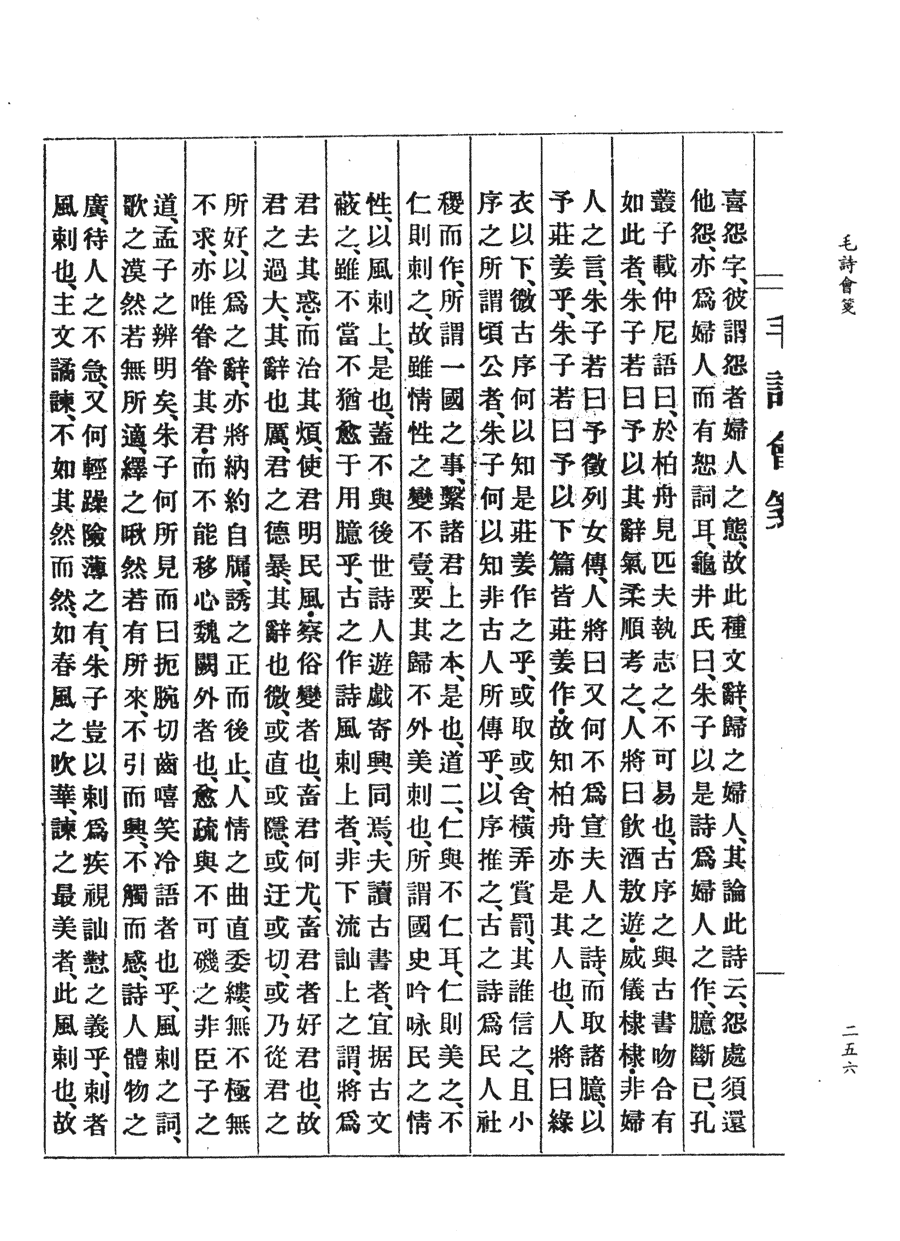 毛詩會箋
二五六
毛詩會箋
喜怨字、彼謂怨者婦人之態、故此種文辭、歸之婦人、其論此詩云、怨處須還
他怨、亦爲婦人而有恕詞耳、龜井氏曰、朱子以是詩爲婦人之作、臆斷已、孔
叢子載仲尼語曰、於柏舟見匹夫執志之不可易也、古序之與古書吻合有
如此者、朱子若曰予以其辭氣柔順考之、人將曰飮酒敖遊、威儀棣棣、非婦
人之言、朱子若曰予徵列女傳、人將曰又何不爲宣夫人之詩、而取諸臆、以
予莊姜乎、朱子若曰予以下篇皆莊姜作、故知柏舟亦是其人也、人將曰綠
衣以下、微古序何以知是莊姜作之乎、或取或舍、橫弄賞罰、其誰信之、且小
序之所謂頃公者、朱子何以知非古人所傳乎、以序推之、古之詩爲民人社
稷而作、所謂一國之事、繫諸君上之本、是也、道二、仁與不仁耳、仁則美之、不
仁則刺之、故雖情性之變不壹、要其歸不外美刺也、所謂國史吟咏民之情
性、以風刺上、是也、蓋不與後世詩人遊戲寄興同焉、夫讀古書者、宜据古文
蔽之、雖不當不猶愈于用臆乎、古之作詩風刺上者、非下流訕上之謂、將爲
君去其惑、而治其煩、使君明民風、察俗變者也、畜君何尤、畜君者好君也、故
君之過大、其辭也厲、君之德暴、其辭也微、或直或隱、或迂或切、或乃從君之
所好、以爲之辭、亦將納約自牖、誘之正而後止、人情之曲直委縷、無不極無
不求、亦唯眷眷其君、而不能移心魏闕外者也、愈疏與不可磯之非臣子之
道、孟子之辨明矣、朱子何所見而曰扼腕切齒嘻笑冷語者也乎、風刺之詞、
歌之漠然若無所適、繹之啾然若有所來、不引而興、不觸而感、詩人體物之
廣、待人之不急、又何輕躁險薄之有、朱子豈以刺爲疾視訕懟之義乎、刺者
風刺也、主文譎諫、不如其然而然、如春風之吹華、諫之最美者、此風刺也、故